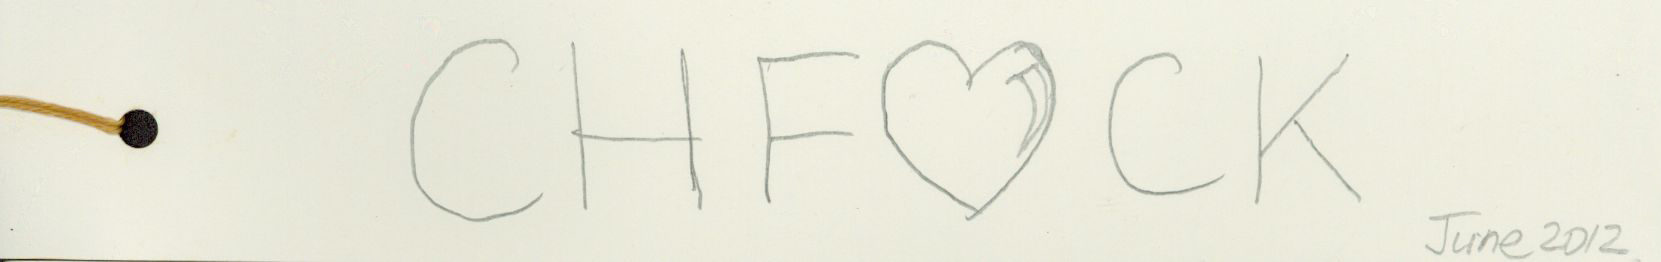 CHF♡CK
June 2012